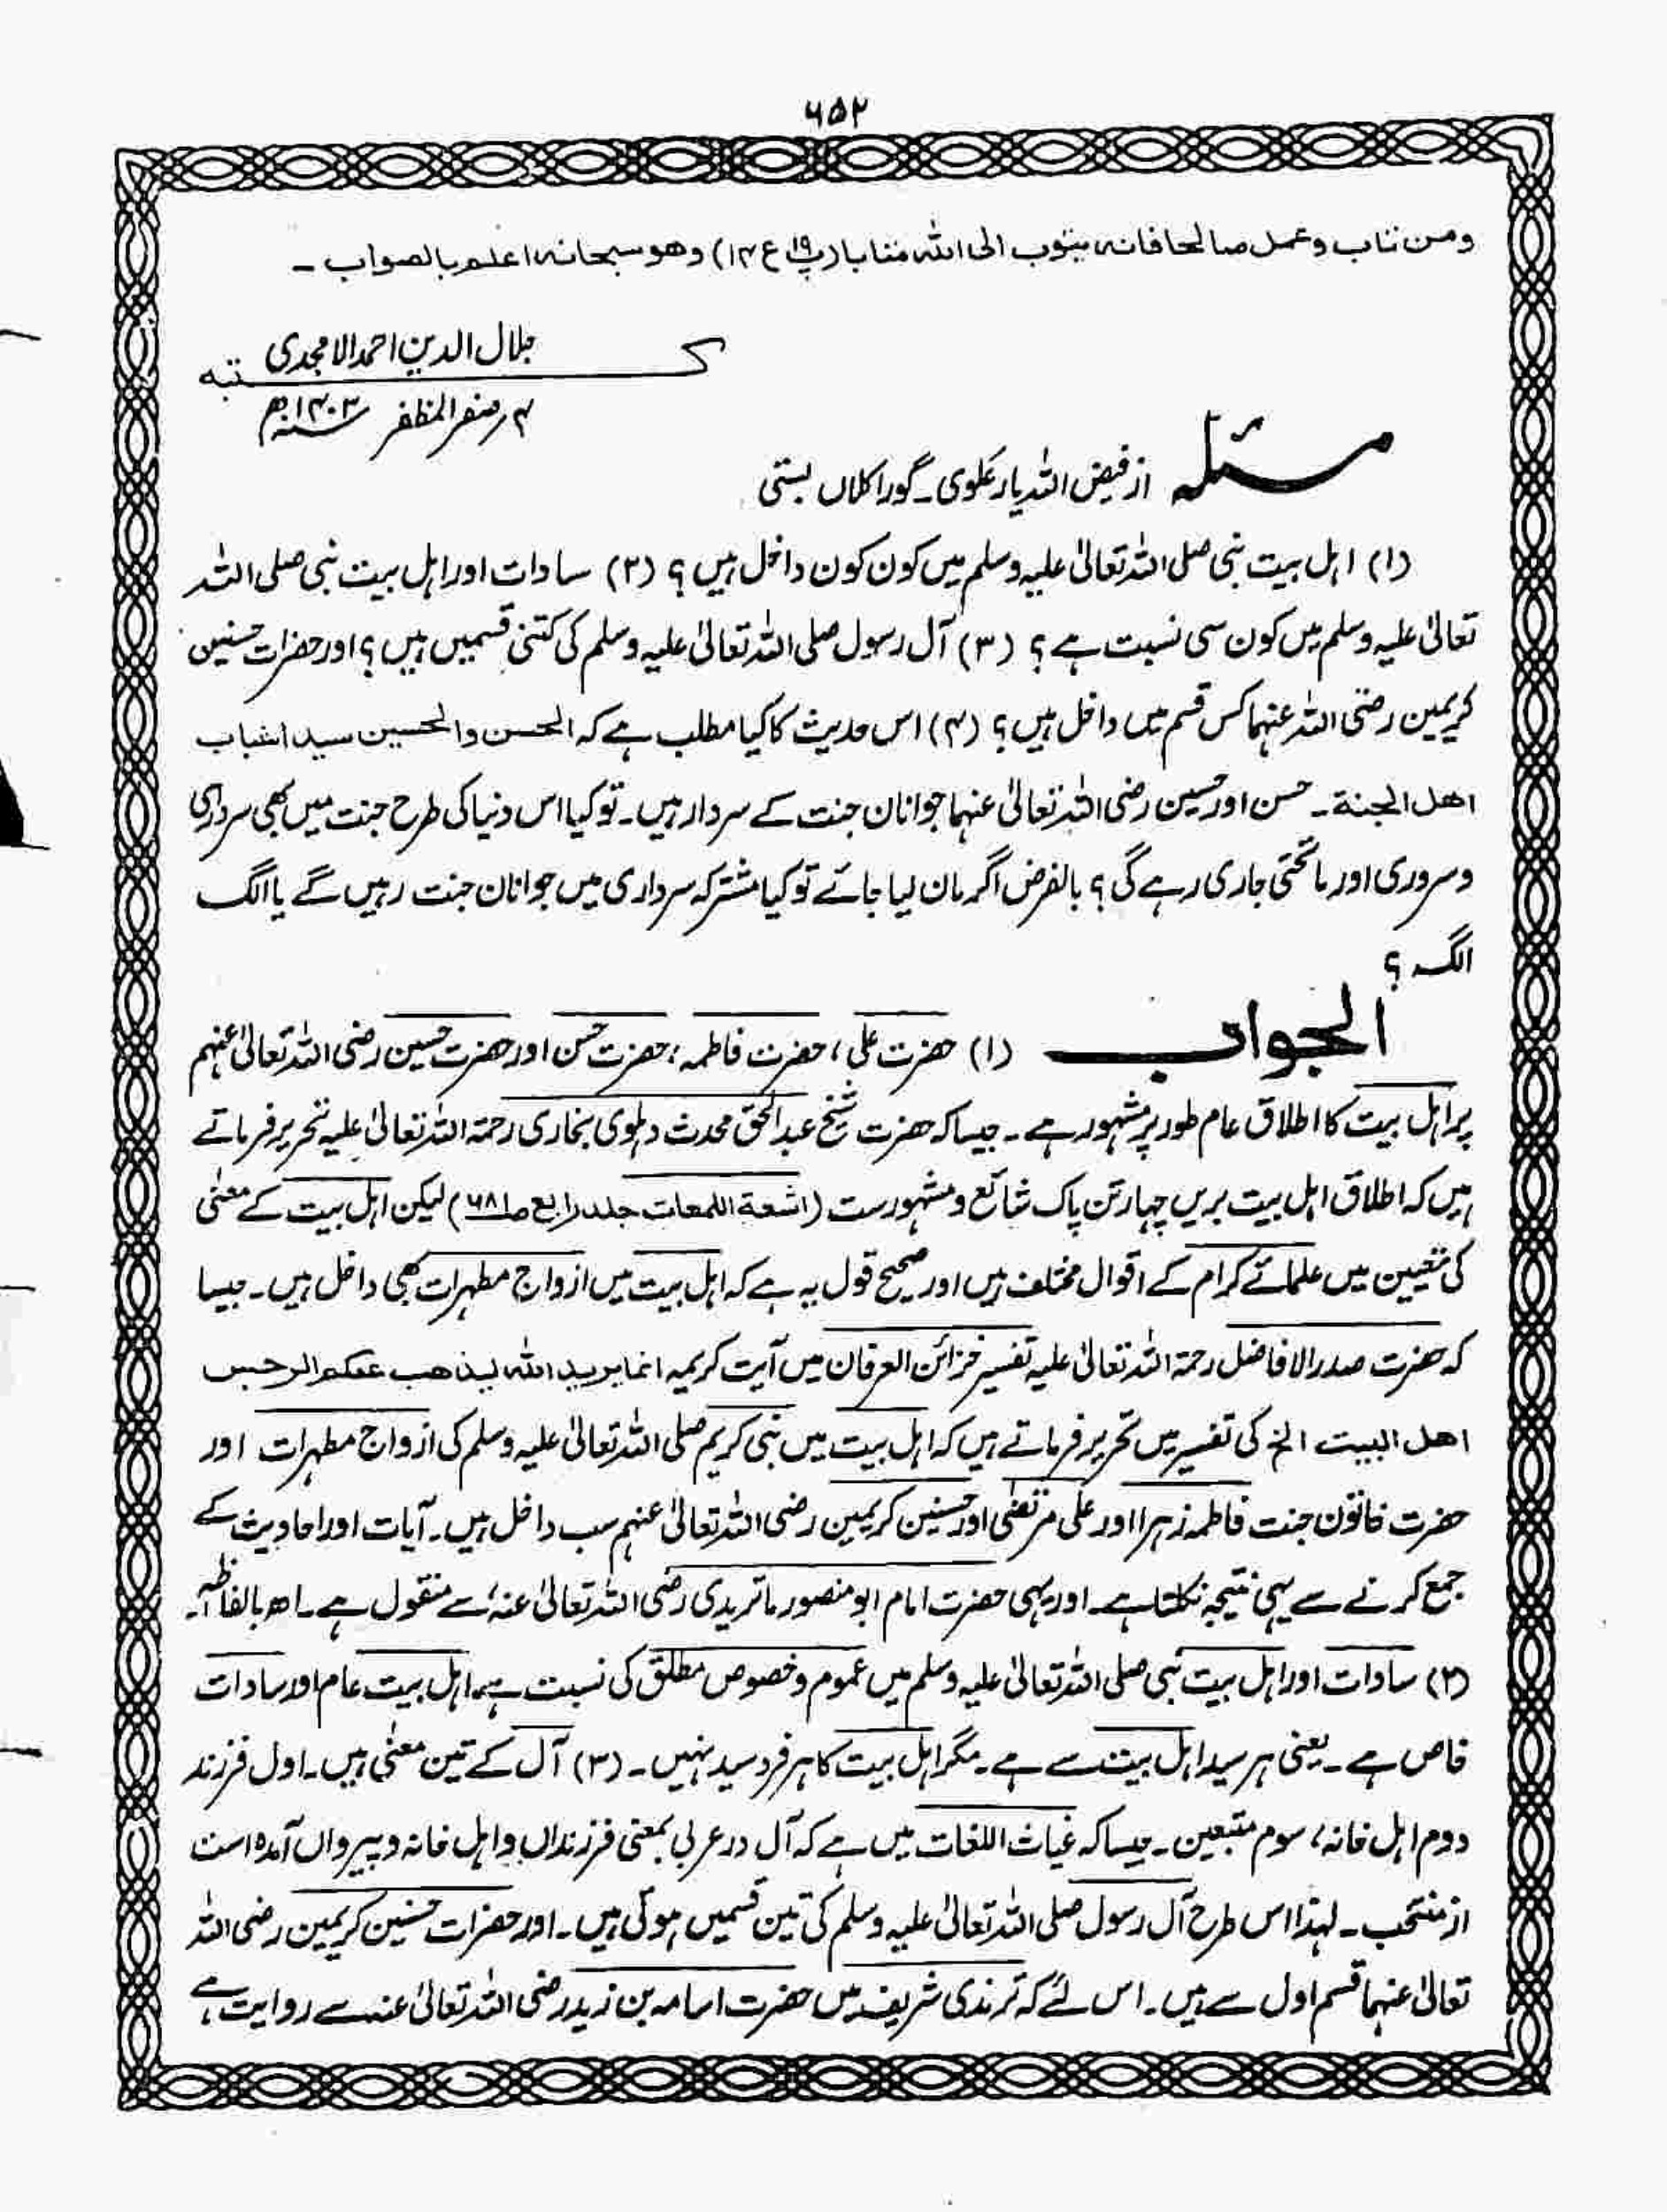 ۶۵۲
ومن تاب وعمل صالحا فانہ یتوب الی اللہ متابا (پ۱۹ ع ۴) وھو سبحانہ اعلم بالصواب ـ
جلال الدین احمد الامجدی
کتبہ
۴ صفر المظفر ۱۴۰۳ھ
مسئلہ از فیض اللہ یار علوی ـ گورا کلاں بستی
(۱) اہل بیت نبی صلی اللہ تعالیٰ علیہ وسلم میں کون کون داخل ہیں ؟ (۲) سادات اور اہل بیت نبی صلی اللہ
تعالیٰ علیہ وسلم میں کون سی نسبت ہے ؟ (۳) آل رسول صلی اللہ تعالیٰ علیہ وسلم کی کتنی قسمیں ہیں ؟ اور حضرات حسنین
کریمین رضی اللہ عنہما کس قسم میں داخل ہیں ؟ (۴) اس حدیث کا کیا مطلب ہے کہ الحسن والحسین سیدا شباب
اھل الجنۃ ـ حسن اور حسین رضی اللہ تعالیٰ عنہما جوانان جنت کے سردار ہیں ـ تو کیا اس دنیا کی طرح جنت میں بھی سرداری
و سروری اور ماتحتی جاری رہے گی ؟ بالفرض اگر مان لیا جائے تو کیا مشترکہ سرداری میں جوانان جنت رہیں گے یا الگ
الگ ؟
الجواب (۱) حضرت علی ، حضرت فاطمہ ، حضرت حسن اور حضرت حسین رضی اللہ تعالیٰ عنہم
پر اہل بیت کا اطلاق عام طور پر مشہور ہے ـ جیسا کہ حضرت شیخ عبدالحق محدث دہلوی بخاری رحمۃ اللہ تعالیٰ علیہ تحریر فرماتے
ہیں کہ اطلاق اہل بیت بریں چہار تن پاک شائع و مشہورست (اشعۃ اللمعات جلد رابع ص۶۸۱) لیکن اہل بیت کے معنی
کی تعیین میں علمائے کرام کے اقوال مختلف ہیں اور صحیح قول یہ ہے کہ اہل بیت میں ازواج مطہرات بھی داخل ہیں ـ جیسا
کہ حضرت صدر الافاضل رحمۃ اللہ تعالیٰ علیہ تفسیر خزائن العرفان میں آیت کریمہ انما یرید اللہ لیذھب عنکم الرجس
اھل البیت الخ کی تفسیر میں تحریر فرماتے ہیں کہ اہل بیت میں نبی کریم صلی اللہ تعالیٰ علیہ وسلم کی ازواج مطہرات اور
حضرت خاتون جنت فاطمہ زہرا اور علی مرتضیٰ اور حسنین کریمین رضی اللہ تعالیٰ عنہم سب داخل ہیں ـ آیات اور احادیث کے
جمع کرنے سے یہی نتیجہ نکلتا ہے ـ اور یہی حضرت امام ابو منصور ماتریدی رضی اللہ تعالیٰ عنہ، سے منقول ہے ـ اھ بالفاظہٖ ـ
(۲) سادات اور اہل بیت نبی صلی اللہ تعالیٰ علیہ وسلم میں عموم و خصوص مطلق کی نسبت ہے، اہل بیت عام اور سادات
خاص ہے ـ یعنی ہر سید اہل بیت سے ہے ـ مگر اہل بیت کا ہر فرد سید نہیں ـ (۳) آل کے تین معنی ہیں ـ اول فرزند
دوم اہل خانہ ، سوم متبعین ـ جیسا کہ غیاث اللغات میں ہے کہ آل در عربی بمعنی فرزنداں و اہل خانہ و پیرواں آمدہ است
از منتخب ـ لہذا اس طرح آل رسول صلی اللہ تعالیٰ علیہ وسلم کی تین قسمیں ہوئی ہیں ـ اور حضرات حسنین کریمین رضی اللہ
تعالیٰ عنہما قسم اول سے ہیں ـ اس لئے کہ ترمذی شریف میں حضرت اسامہ بن زید رضی اللہ تعالیٰ عنہ سے روایت ہے